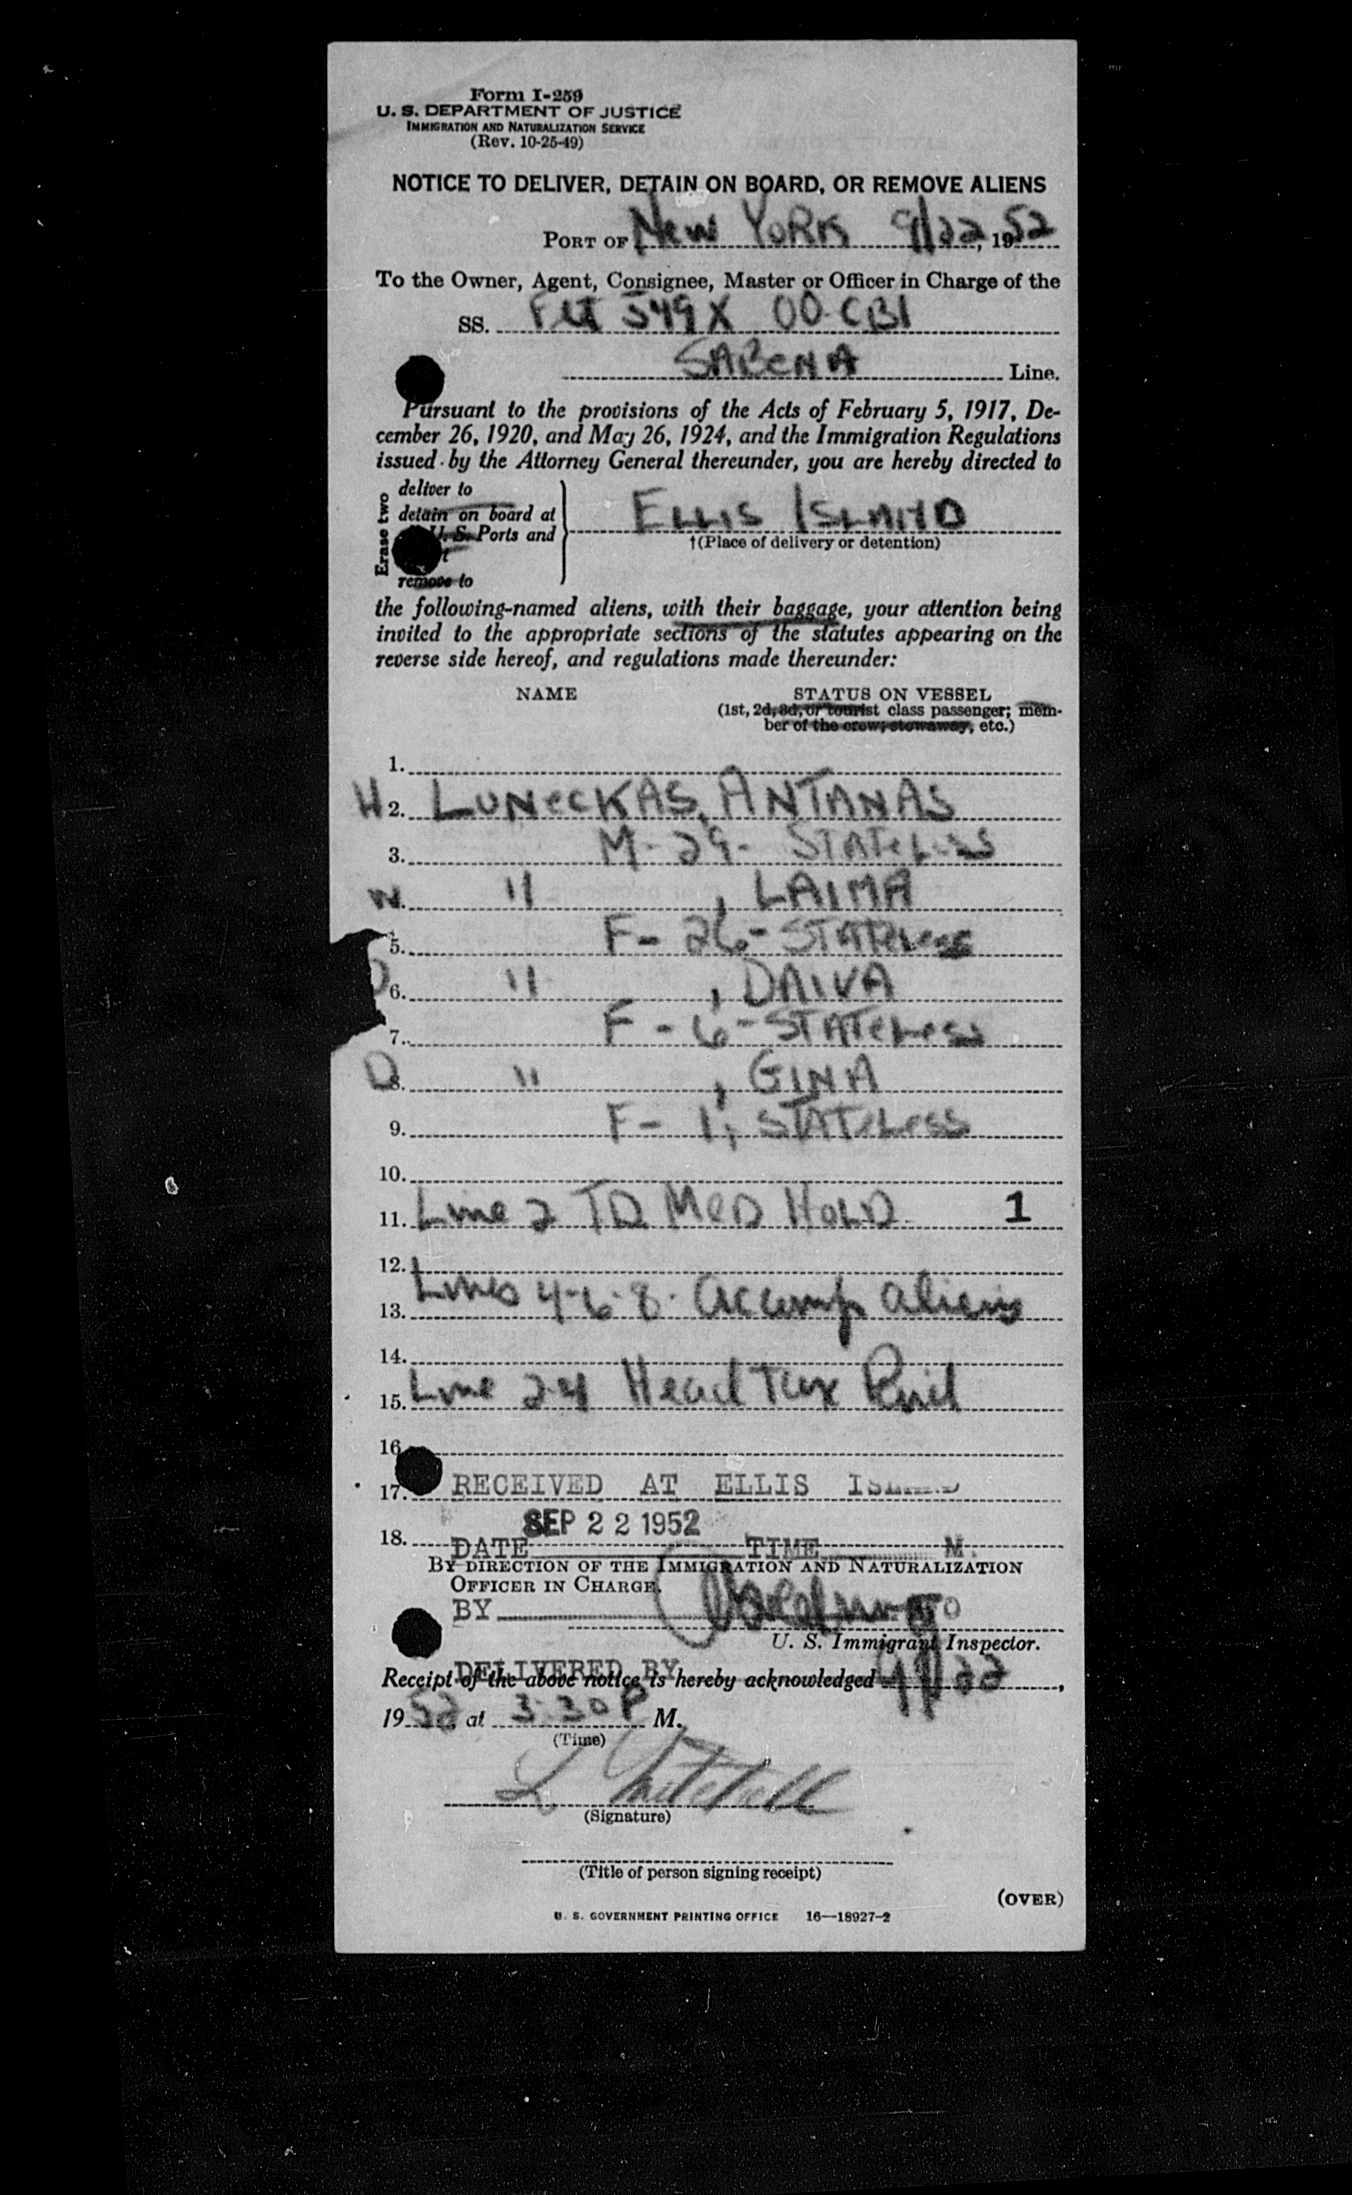 Form I-259
U. S. DEPARTMENT OF JUSTICE
IMMIGRATION AND NATURALIZATION SERVICE
(Rev. 10-25-49)
NOTICE TO DELIVER, DETAIN ON BOARD, OR REMOVE ALIENS
PORT OF New YORK 9/22, 1952
To the Owner, Agent, Consignee, Master or Officer in Charge of the
SS. FLT 549X OO-CBI
SABENA Line.
Pursuant to the provisions of the Acts of February 5, 1917, De-
cember 26, 1920, and May 26, 1924, and the Immigration Regulations
issued by the Attorney General thereunder, you are hereby directed to
Erase two
deliver to
detain on board at
U. S. Ports and
remove to
ELLIS ISLAND
†(Place of delivery or detention)
the following-named aliens, with their baggage, your attention being
invited to the appropriate sections of the statutes appearing on the
reverse side hereof, and regulations made thereunder:
NAME STATUS ON VESSEL
(1st, 2d, 3d, or tourist class passenger; mem-
ber of the crew, stowaway, etc.)
1.
H 2. LUNeCKAS, ANTANAS
3. M-29- STATeLess
W. " , LAIMA
5. F-26-STATeLess
D 6. " , DAIVA
7. F-6-STATeLess
D 8. " , GINA
9. F-1; STATeLess
10.
11. Line 2 TD MeD HOLD 1
12.
Lines 4-6-8. Accomp aliens
13.
14.
15. Line 2-4 Head Tax Paid
16.
17. RECEIVED AT ELLIS ISLAND
18. DATE SEP 22 1952 TIME M.
BY DIRECTION OF THE IMMIGRATION AND NATURALIZATION
OFFICER IN CHARGE.
BY
U. S. Immigrant Inspector.
DELIVERED BY
Receipt of the above notice is hereby acknowledged 9/22,
1952 at 3:30 P M.
(Time)
L Mitchell
(Signature)
(Title of person signing receipt)
(OVER)
U. S. GOVERNMENT PRINTING OFFICE 16—18927-2